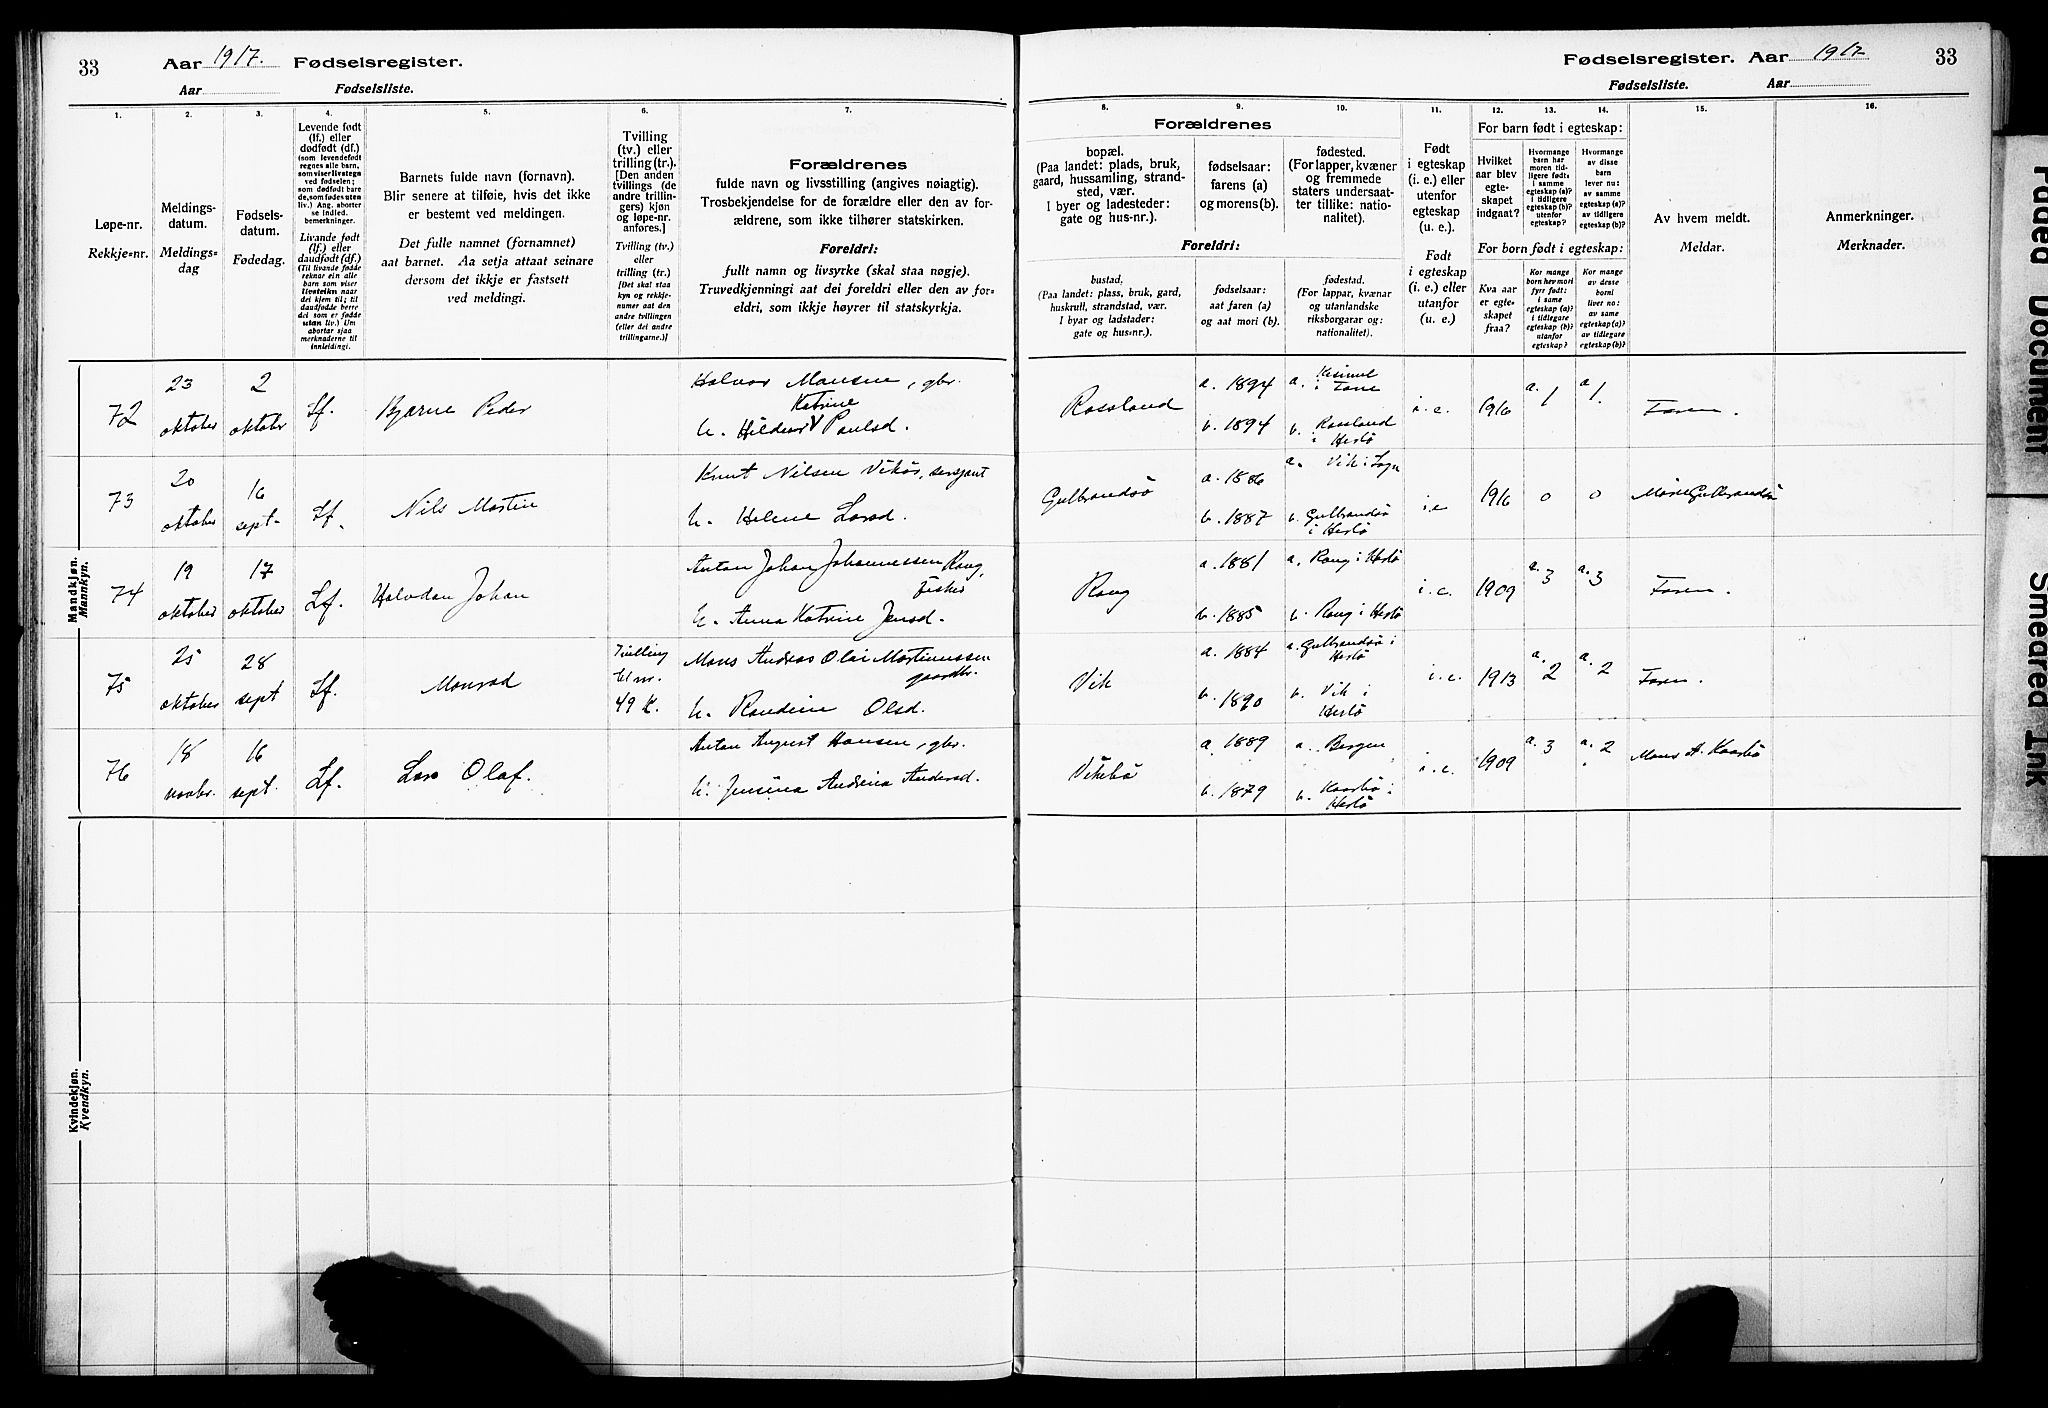 33 Aar 1917. Fødselsregister.
Aar Fødselsliste.
Fødselsregister. Aar 1917 33
Fødselsliste. Aar
1. 2. 3. 4. 5. 6. 7.
8. 9. 10. 11. 12. 13. 14. 15. 16.
Løpe-nr.
Rekkje=nr.
Meldings-
datum.
Meldings=
dag
Fødsels-
datum.
Fødedag.
Levende født
(lf.) eller
dødfødt (df.)
(som levendefødt
regnes alle barn,
som viser livstegn
ved fødselen;
som dødfødt bare
de, som fødes uten
liv.) Ang. aborter
se indled.
bemerkninger.
Livande født
(lf.) eller
daudfødt (df.)
(Til livande fødde
reknar ein alle
barn som viser
livsteikn naar
dei kjem til; til
daudfødde berre
dei som er fødde
utan liv.) Um
abortar sjaa
merknaderne til
innleidingi.
Barnets fulde navn (fornavn).
Blir senere at tilføie, hvis det ikke
er bestemt ved meldingen.
Det fulle namnet (fornamnet)
aat barnet. Aa setja attaat seinare
dersom det ikkje er fastsett
ved meldingi.
Tvilling
(tv.) eller
trilling (tr.).
[Den anden
tvillings (de
andre trillin-
gers) kjøn
og løpe-nr.
anføres.]
Tvilling (tv.)
eller
trilling (tr.)
[Det skal staa
kyn og rekkje-
numer aat den
andre tvillingen
(eller dei andre
trillingarne.)]
Forældrenes
fulde navn og livsstilling (angives nøiagtig).
Trosbekjendelse for de forældre eller den av for-
ældrene, som ikke tilhører statskirken.
Foreldri:
fullt namn og livsyrke (skal staa nøgje).
Truvedkjenningi aat dei foreldri eller den av for=
eldri, som ikkje høyrer til statskyrkja.
Forældrenes
bopæl.
(Paa landet: plads, bruk,
gaard, hussamling, strand-
sted, vær.
I byer og ladesteder:
gate og hus-nr.).
fødselsaar:
farens (a)
og morens (b).
fødested.
(For lapper, kvæner
og fremmede
staters undersaat-
ter tillike: natio-
nalitet).
Foreldri:
bustad,
(Paa landet: plass, bruk, gard,
huskrull, strandstad, vær.
I byar og ladstader:
gate og hus=nr.).
fødselsaar:
aat faren (a)
og aat mori (b).
fødestad.
(For lappar, kvænar
og utanlandske
riksborgarar og:
nationalitet).
Født
i egteskap
(i. e.) eller
utenfor
egteskap
(u. e.).
Født
i egteskap
(i. e.) eller
utanfor
(u. e.).
For barn født i egteskap:
Hvilket
aar blev
egte-
skapet
indgaat?
Hvormange
barn har
moren tid-
ligere født:
i samme
egteskap (a)?
i tidligere
egteskap (b)?
utenfor
egteskap?
Hvormange
av disse
barn
lever nu:
av samme
egteskap (a)?
av tidligere
egteskap (b)?
For born født i egteskap:
Kva aar
er egte-
skapet
fraa?
Kor mange
born hev mori
fyrr født:
i same
egteskap (a)?
i tidlegare
egteskap (b)?
utanfor
egteskap?
Kor mange
av desse
borni
liver no:
av same
egteskap (a)?
av tidlegare
egteskap (b)?
Av hvem meldt.
Meldar.
Anmerkninger.
Merknader.
Mandkjøn.
Mannkyn.
72 23 oktober 2 oktober Lf. Bjarne Peder Halvor Monsen, gbr.
Katrine
h. Hildeur Paulsd.
Rossland a. 1894 a. i Fane
b. 1894 b. Rossland i Herlö
i. e. 1916 a. 1 a 1. Faren.
73 20 oktober 16 sept. Lf. Nils Martin Knut Nilsen Vikör, sersjant
h. Helene Larsd.
Gulbrandsö a. 1886 a. Vik i Sogn
b. 1887 b. Gulbrandsö i Herlö
i. e 1916 0 0 Marie Gulbrandsö
74 19 oktober 17 oktober Lf. Halvdan Johan Anton Johan Johannessen Rong,
fisker
h. Anna Katrine Jensd.
Rong a. 1881 a. Rong i Herlö
b. 1885 b. Rong i Herlö
i. e. 1909 a. 3 a. 3 Faren.
75 25 oktober 28 sept Lf. Monrad Tvilling
til nr.
49 K.
Mons Andreas Olai Martinussen
gaardbr.
h. Randine Olsd.
Vik a. 1884 a. Gulbrandsö i Herlö
b. 1890 b. Vik i Herlö
i. e. 1913 a. 2 a. 2 Faren.
76 18 novbr. 16 sept. Lf. Lars Olaf. Anton August Hansen, gbr.
h. Jensina Andrina Andersd.
Vikebö a. 1889 a. Bergen
b. 1879 b. Kaarbö i Herlö
i. e. 1909 a. 3 a. 2 Mons A. Kaarbö
Kvindekjøn.
Kvendkyn.
Faded Document
Smeared Ink